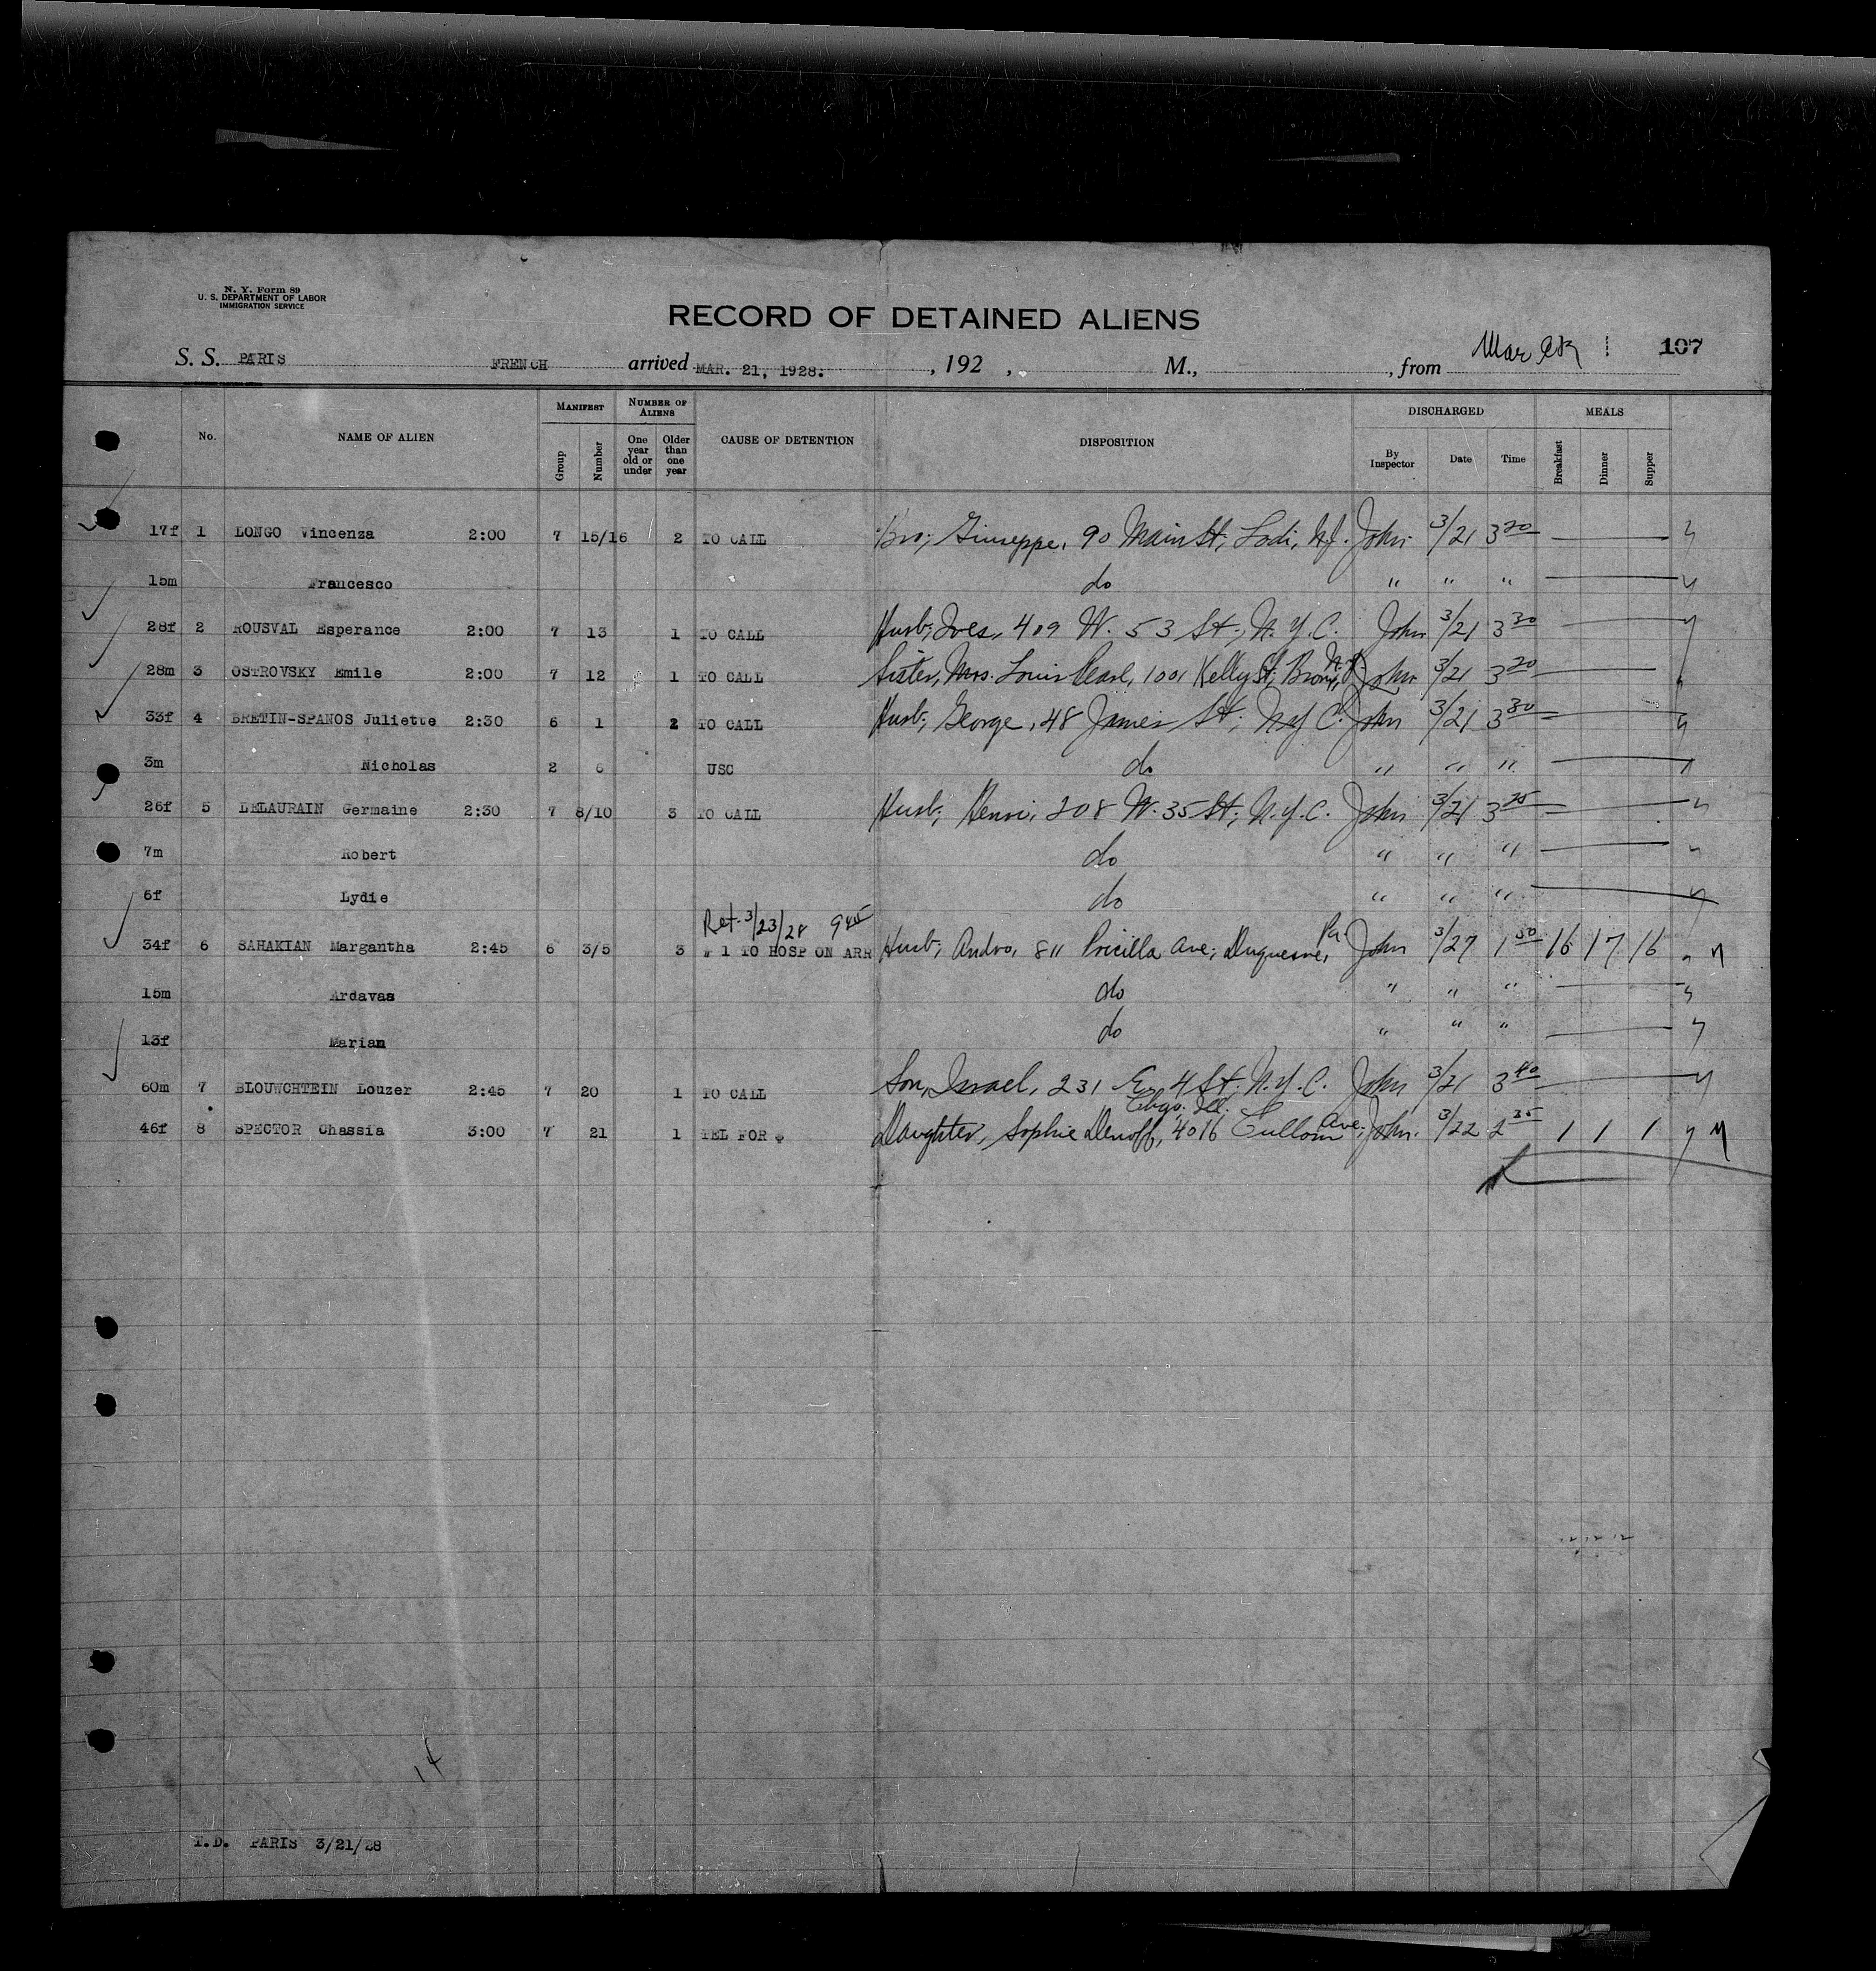 N. Y. Form 89
U. S. DEPARTMENT OF LABOR
IMMIGRATION SERVICE
RECORD OF DETAINED ALIENS
S. S. PARIS FRENCH arrived MAR. 21, 1928. , 192 , M., , from 107
No. NAME OF ALIEN MANIFEST Group Number NUMBER OF ALIENS One year old or under Older than one year CAUSE OF DETENTION DISPOSITION DISCHARGED By Inspector Date Time MEALS Breakfast Dinner Supper
17f 1 LONGO Vincenza 2:00 7 15/16 2 TO CALL Bro; Giuseppe, 90 Main St; Lodi, N.J. John 3/21 3 20
15m Francesco do " " "
28f 2 ROUSVAL Esperance 2:00 7 13 1 TO CALL Husb; Ives, 409 W. 53 St; N.Y.C. John 3/21 3 30
28m 3 OSTROVSKY Emile 2:00 7 12 1 TO CALL Sister, Mrs. Louis Pearl, 1001 Kelly St; Bronx, N.Y. John 3/21 3 20
33f 4 BRETIN-SPANOS Juliette 2:30 6 1 2 TO CALL Husb; George, 48 James St; N.Y.C. John 3/21 3 30
3m Nicholas 2 6 USC do " " "
26f 5 DELAURAIN Germaine 2:30 7 8/10 3 TO CALL Husb; Henri, 208 W. 35 St; N.Y.C. John 3/21 3 25
7m Robert do " " "
6f Lydie do " " "
Ret. 3/23/28 9 45
34f 6 SAHAKIAN Margantha 2:45 6 3/5 3 # 1 TO HOSP ON ARR Husb; Andro, 811 Pricilla Ave; Duquesne, Pa. John 3/27 1 30 16 17 16
15m Ardavas do " " "
13f Marian do " " "
60m 7 BLOUWCHTEIN Louzer 2:45 7 20 1 TO CALL Son, Israel, 231 E. 4 St; N.Y.C. John 3/21 3 40
46f 8 SPECTOR Chassia 3:00 7 21 1 TEL FOR $ Daughter, Sophie Denoff, 4016 Cullom Ave; Chgo. Ill. John. 3/22 2 35 1 1 1
14
I.D. PARIS 3/21/28